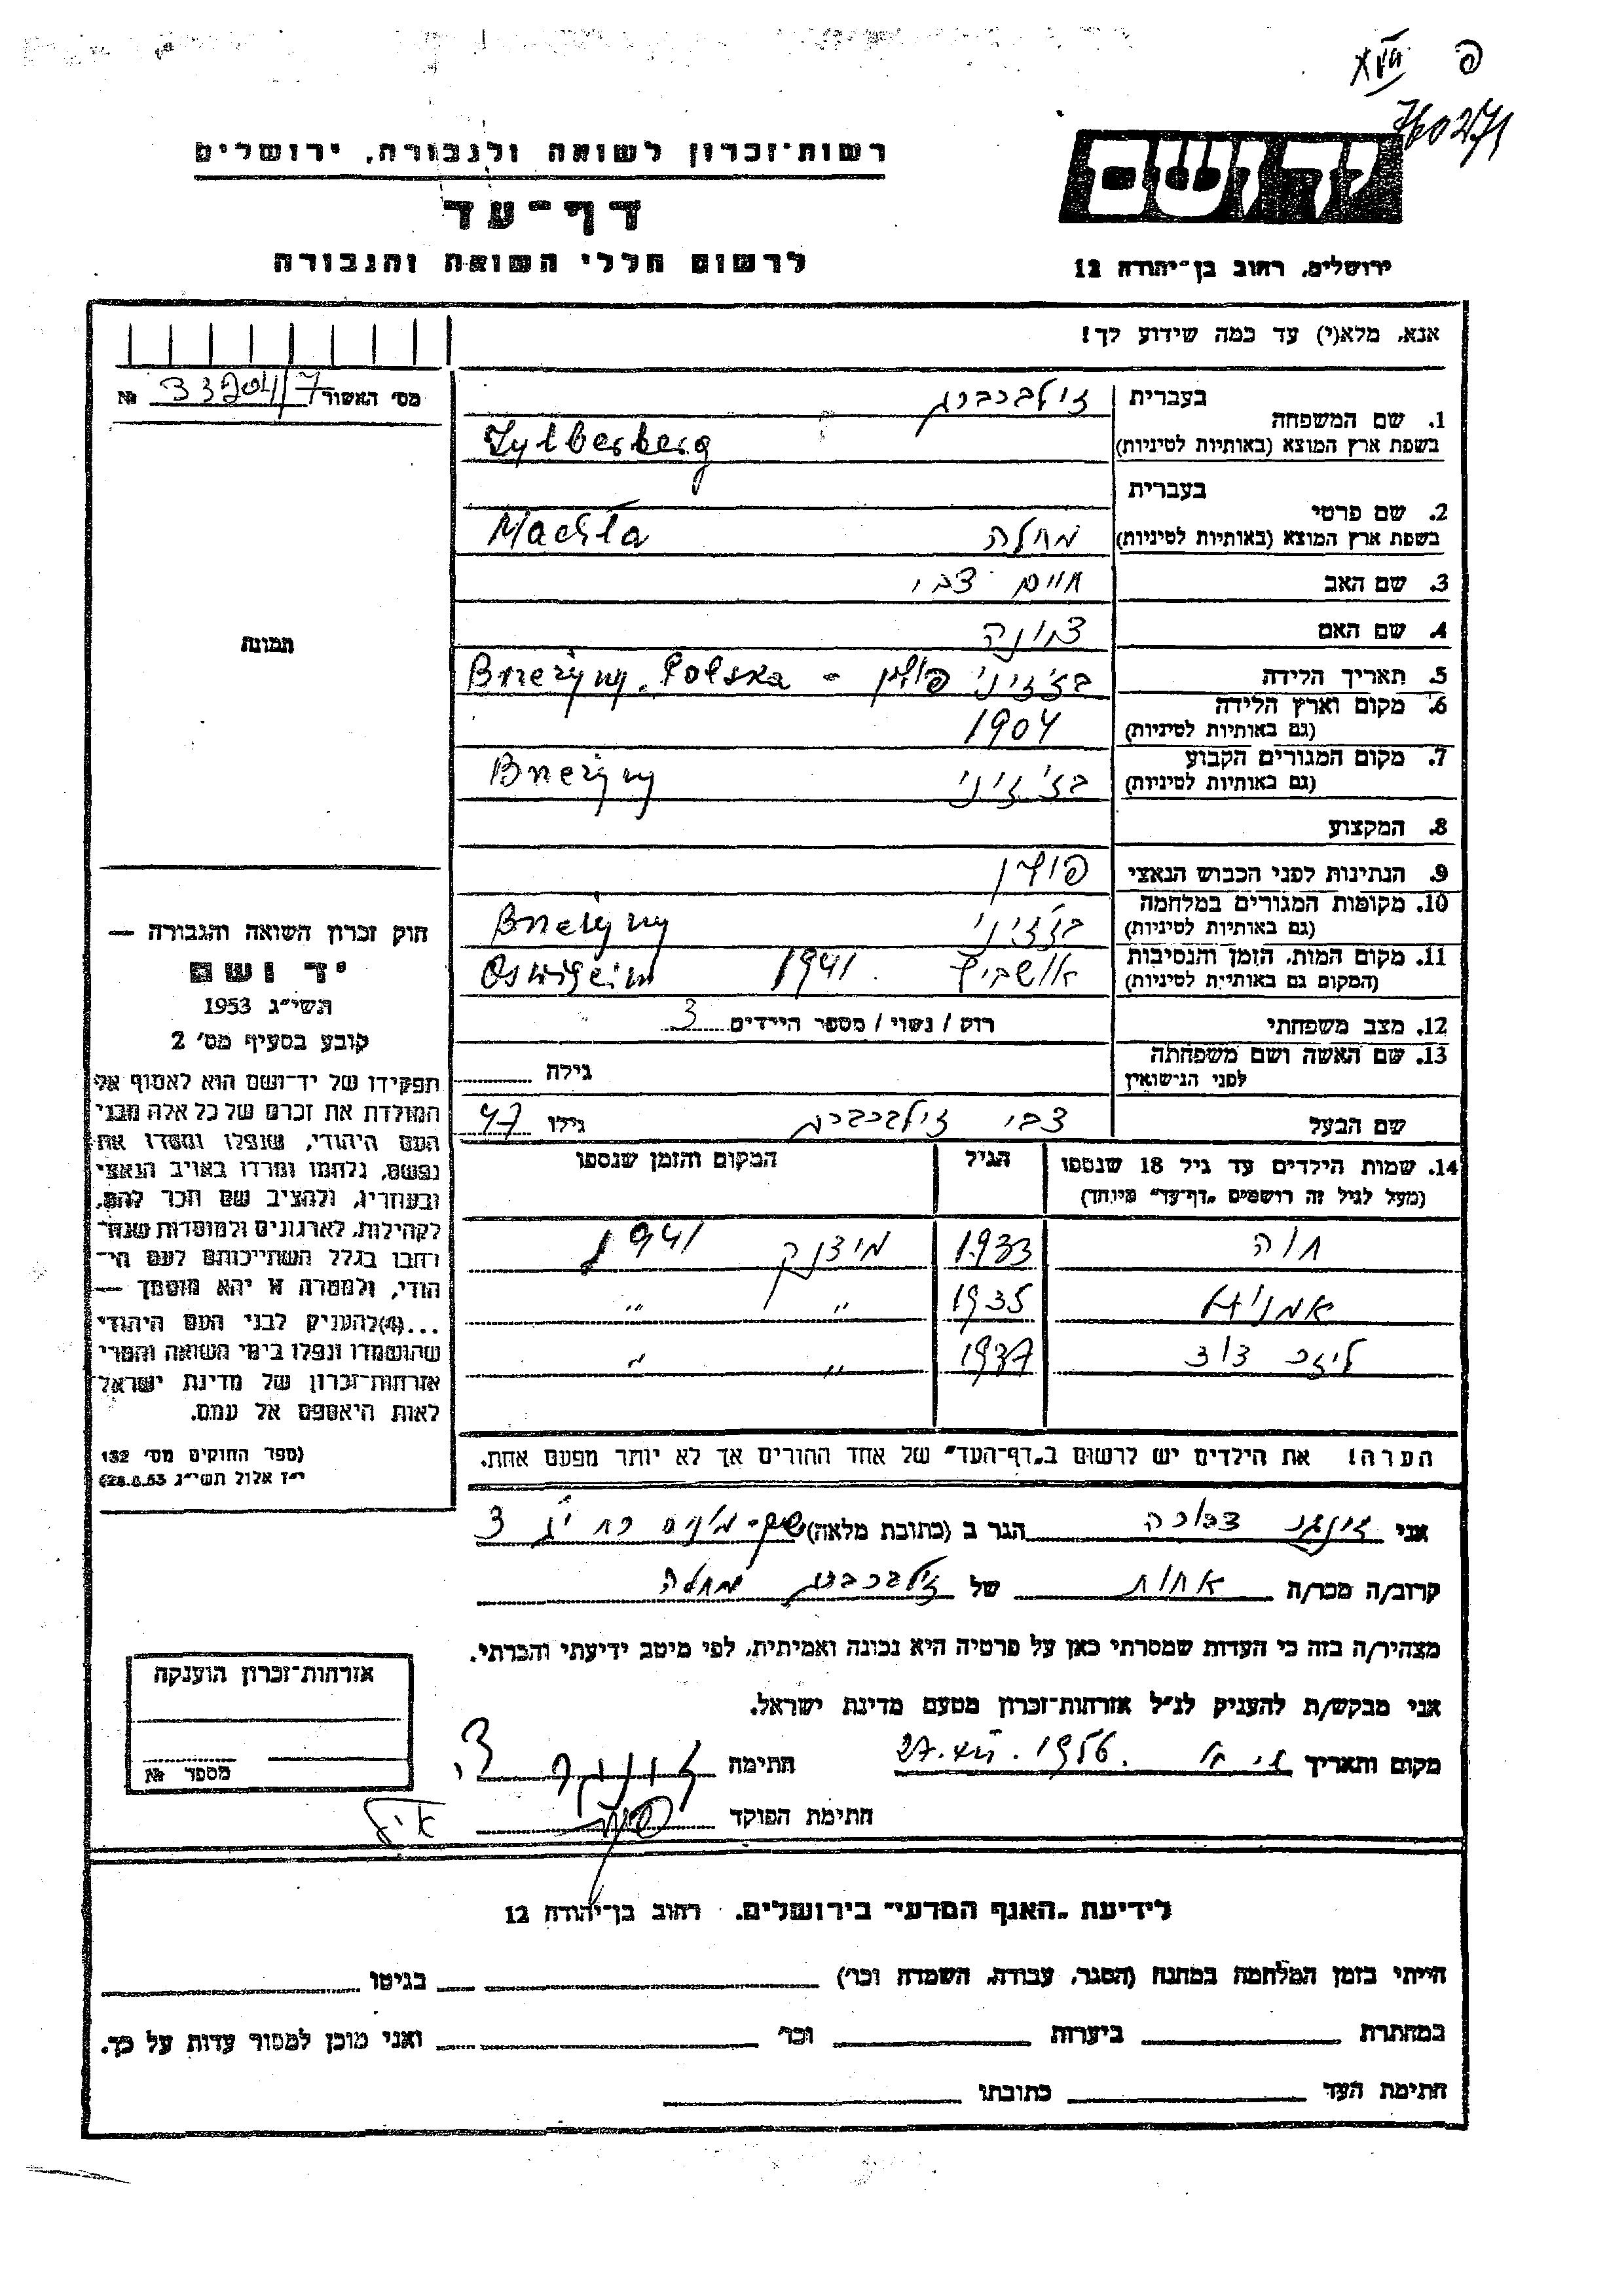 פ
760271
רשות־זכרון לשואה ולגבורה, ירושלים
דף־עד
לרשום חללי השואה והגבורה
ירושלים, רחוב בן־יהודה 12
אנא, מלא(י) עד כמה שידוע לך!
מס׳ האשור 33204/7 №
1. שם המשפחה בעברית זילברברג
בשפת ארץ המוצא (באותיות לטיניות) Zylberberg
2. שם פרטי בעברית
בשפת ארץ המוצא (באותיות לטיניות) מחלה Machla
3. שם האב חיים צבי
4. שם האם
5. תאריך הלידה בז׳זיני פולין - Brzeziny. Polska
6. מקום וארץ הלידה (גם באותיות לטיניות) 1904
7. מקום המגורים הקבוע (גם באותיות לטיניות) בז׳זיני Brzeziny
8. המקצוע
9. הנתינות לפני הכבוש הנאצי פולין
10. מקומות המגורים במלחמה (גם באותיות לטיניות) בז׳זיני Brzeziny
11. מקום המות, הזמן והנסיבות (המקום גם באותיות לטיניות) אושביץ 1941.
12. מצב משפחתי רוק / נשוי / מספר הילדים 3
13. שם האשה ושם משפחתה לפני הנישואין גילה
שם הבעל צבי זילברברג גילו 47
14. שמות הילדים עד גיל 18 שנספו הגיל המקום והזמן שנספו
(מעל לגיל זה רושמים „דף־עד״ מיוחד)
חוה 1933 1941
1935 ״ ״
1937 ״ ״
הערה! את הילדים יש לרשום ב„דף־העד״ של אחד ההורים אך לא יותר מפעם אחת.
תמונה
חוק זכרון השואה והגבורה —
יד ושם
תשי״ג 1953
קובע בסעיף מס׳ 2
תפקידו של יד־ושם הוא לאסוף אל
המולדת את זכרם של כל אלה מבני
העם היהודי, שנפלו ומסרו את
נפשם, נלחמו ומרדו באויב הנאצי
ובעוזריו, ולהציב שם וזכר להם,
לקהילות, לארגונים ולמוסדות שנח־
רבו בגלל השתייכותם לעם הי־
הודי, ולמטרה זו יהא מוסמך —
...(4)להעניק לבני העם היהודי
שהושמדו ונפלו בימי השואה והמרי
אזרחות־זכרון של מדינת ישראל
לאות היאספם אל עמם.
(ספר החוקים מס׳ 132
י״ז אלול תשי״ג 28.8.53)
אני דבורה הגר ב (כתובת מלאה) 3
קרוב/ה מכר/ה אחות של זילברברג מחלה
מצהיר/ה בזה כי העדות שמסרתי כאן על פרטיה היא נכונה ואמיתית, לפי מיטב ידיעתי והכרתי.
אני מבקש/ת להעניק לנ״ל אזרחות־זכרון מטעם מדינת ישראל.
מקום ותאריך 1956 חתימה
חתימת הפוקד
אזרחות־זכרון הוענקה
מספר №
לידיעת „האגף המדעי״ בירושלים. רחוב בן־יהודה 12
הייתי בזמן המלחמה במחנה (הסגר, עבודה, השמדה וכו׳) בגיטו
במחתרת ביערות וכו׳ ואני מוכן למסור עדות על כך.
חתימת העד כתובתו